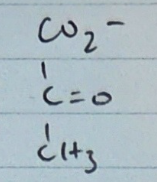 CO₂⁻
C=O
CH₃